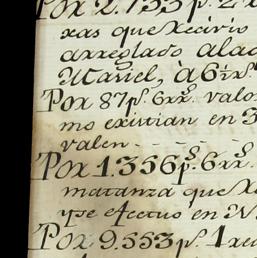 Por 2.753 p.s 2 r
xas que Recivio
arreglado a la
Mariel, à 6½ rs.
Por 87 p.s 6 rr.s valo
mo existian en 3
valen - - -
Por 1.356 p.s 6 rr.s
matanza que Re
ype efectuo en N
Por 9.553 p.s 1 rea